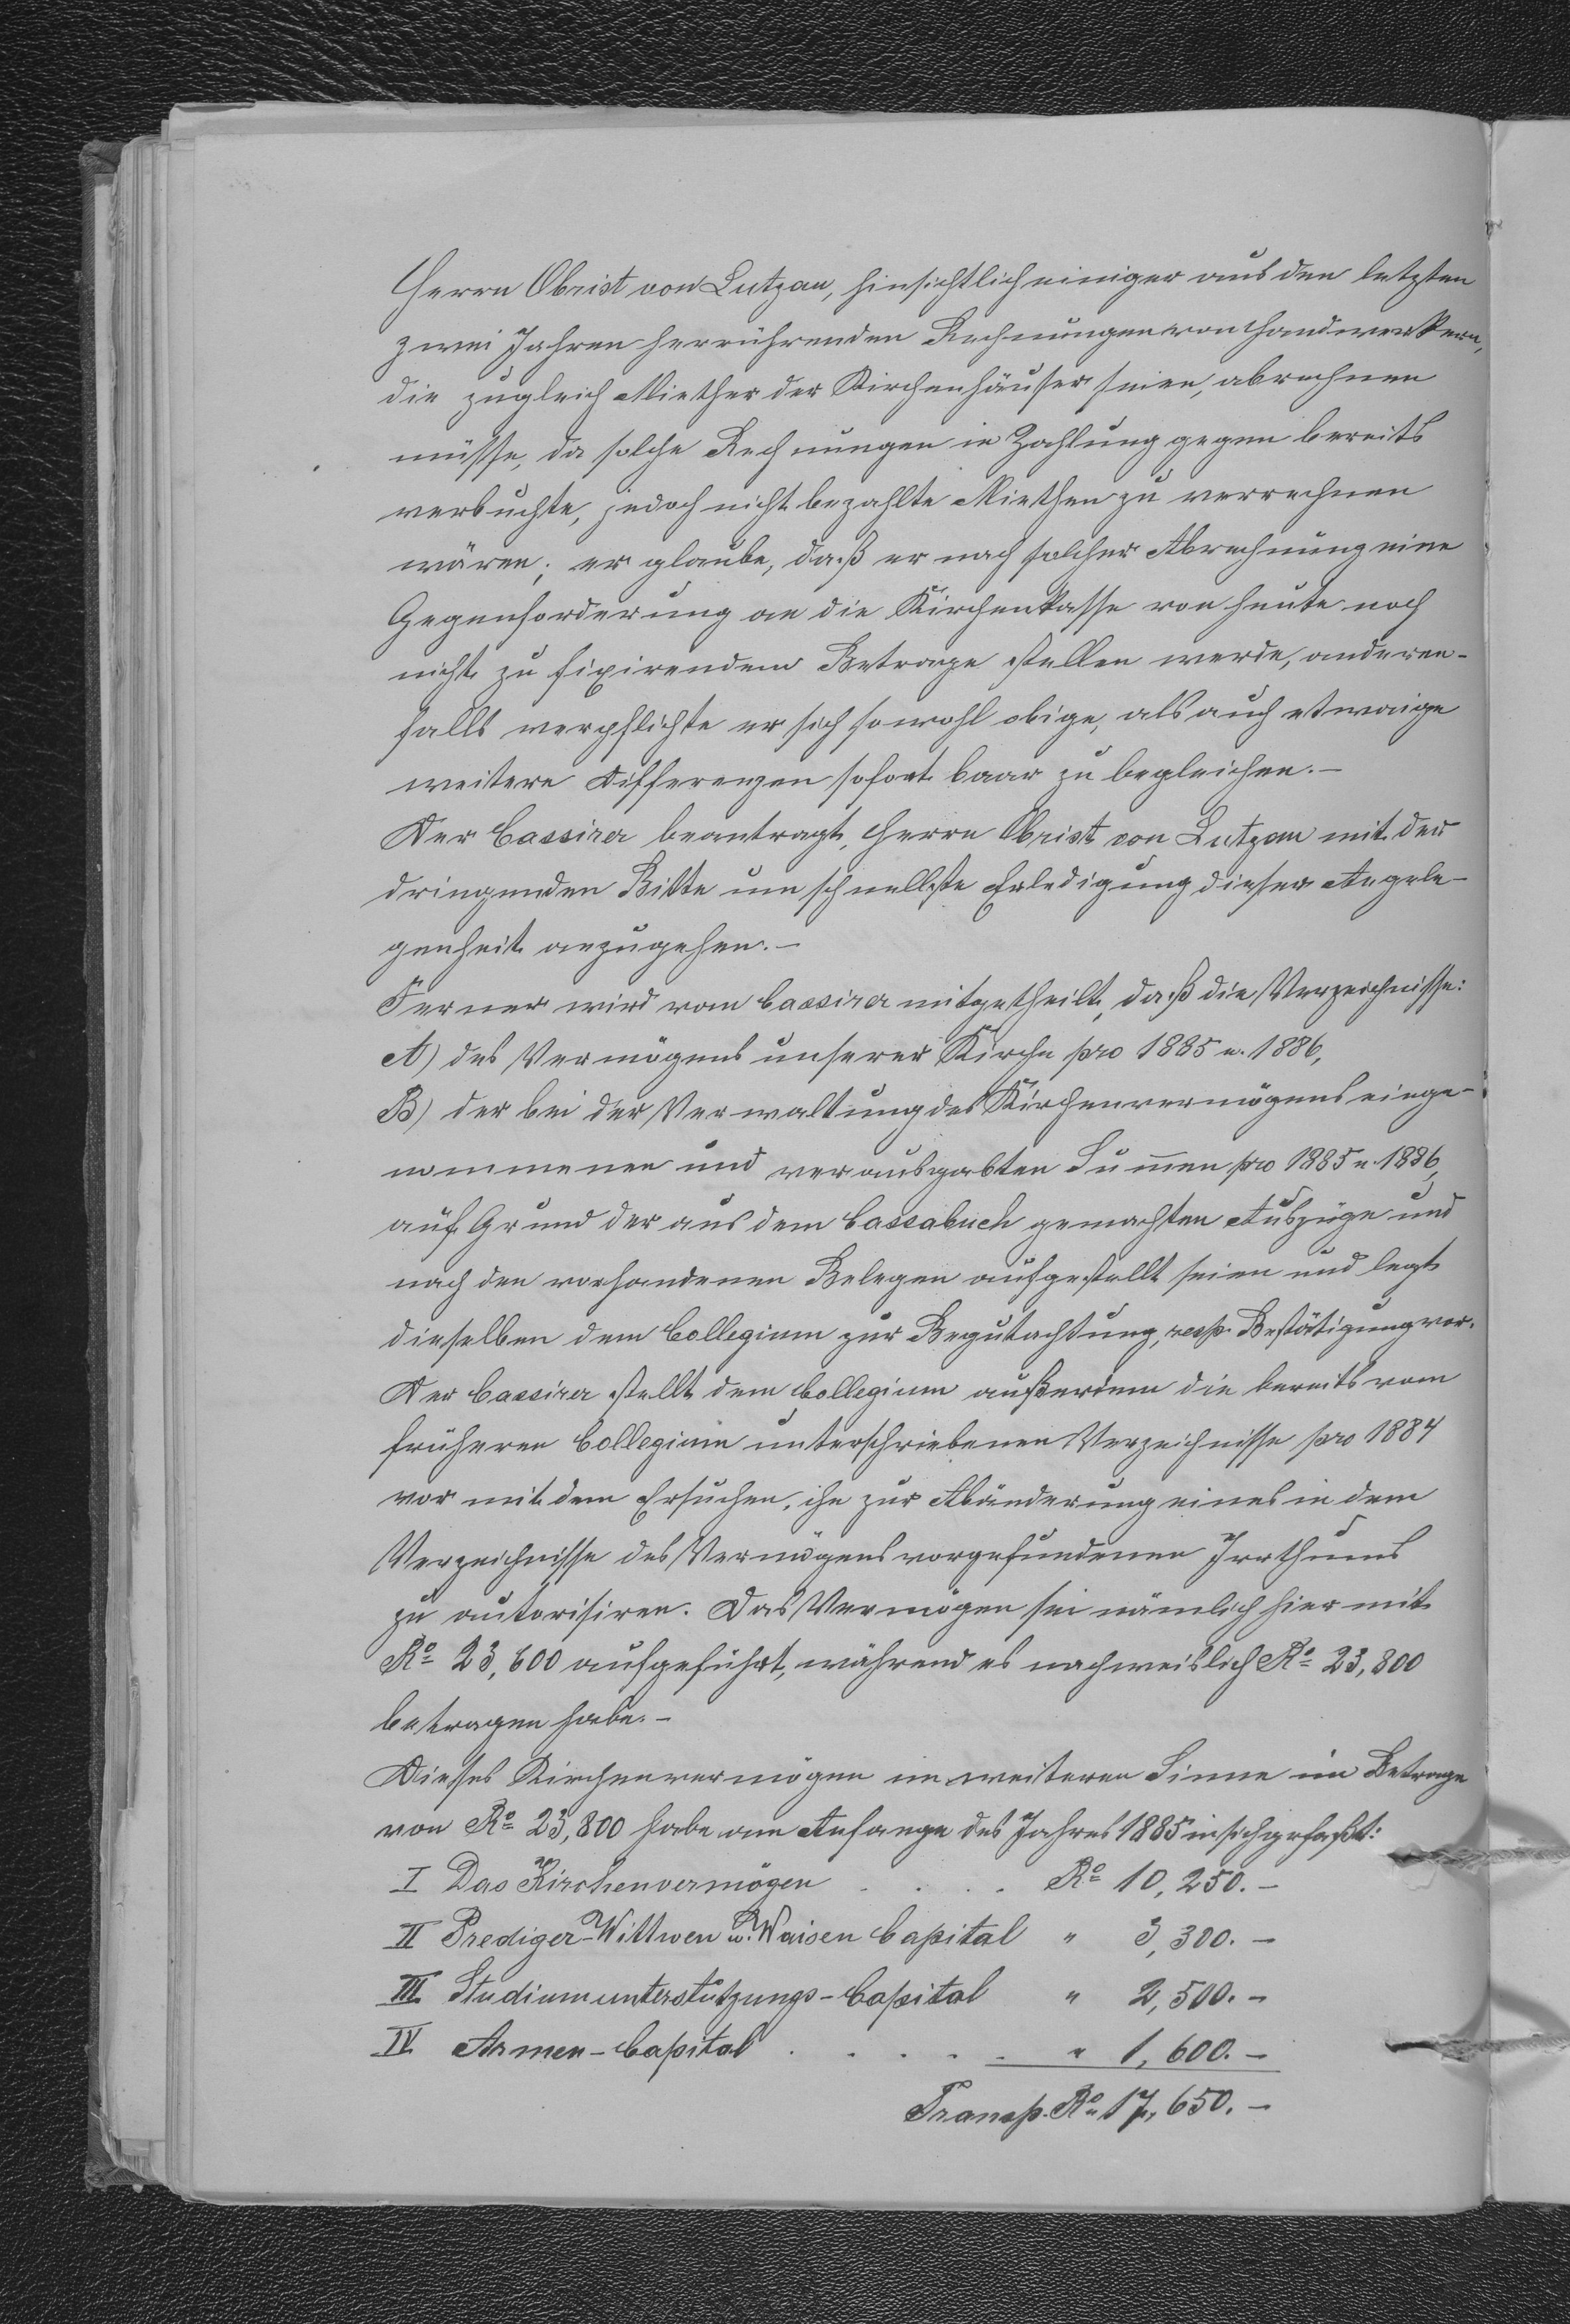 Herrn Obrist von Lutzau, hinsichtlich einiger aus den letzten
zwei Jahren herrührenden Rechnungen von Handwerkern,
die zugleich Miether der Kirchenhäuser seien, abrechnen
müsse, da solche Rechnungen in Zahlung gegen bereits
verbuchte, jedoch nicht bezahlte Miethen zu verrechnen
wären; er glaube, daß er nach solcher Abrechnung eine
Gegenforderung an die Kirchenkasse von heute noch
nicht zu fixirendem Betrage stellen werde, anderen-
falls verpflichte er sich sowohl obige, als auch etwaige
weitere Differenzen sofort baar zu begleichen.—
Der Cassirer beantragt, Herrn Obrist von Lutzau mit der
dringenden Bitte um schnellste Erledigung dieser Angele-
genheit anzugehen.—
Ferner wird vom Cassirer mitgetheilt, daß die Verzeichnisse:
A) des Vermögens unserer Kirche pro 1885 u. 1886,
B) der bei der Verwaltung des Kirchenvermögens einge-
nommenen und verausgabten Summen pro 1885 u. 1886,
auf Grund der aus dem Cassabuch gemachten Auszüge und
nach den vorhandenen Belegen aufgestellt seien und legt
dieselben dem Collegium zur Begutachtung, resp. Bestätigung vor.
Der Cassirer stellt dem Collegium außerdem die bereits vom
früheren Collegium unterschriebenen Verzeichnisse pro 1884
vor mit dem Ersuchen, ihn zur Abänderung eines in dem
Verzeichnisse des Vermögens vorgefundenen Irrthums
zu autorisiren. Das Vermögen sei nämlich hier mit
Ro 23,600 aufgeführt, während es nachweislich Ro 23,800
betragen habe.—
Dieses Kirchenvermögen im weiteren Sinne im Betrage
von Ro 23,800 habe am Anfange des Jahres 1885 in sich gefaßt:
I Das Kirchenvermögen . . . . Ro 10,250.—
II Prediger-Wittwen u. Waisen Capital " 3,300.—
III Studiumunterstützungs-Capital " 2,500.—
IV Armen-Capital . . . . . " 1,600.—
Transp. Ro 17,650.—